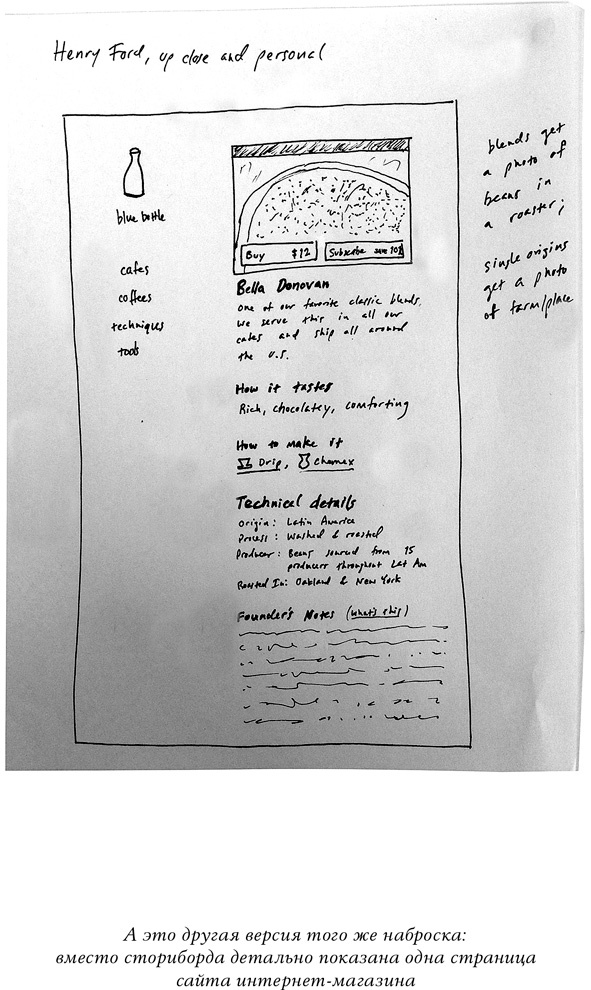 Henry Ford, up close and personal
blue bottle
cafes
coffees
techniques
tools
Buy $12
Subscribe save 10%
Bella Donovan
One of our favorite classic blends.
we serve this in all our
cafes and ship all around
the U.S.
How it tastes
Rich, chocolatey, comforting
How to make it
Drip, Chemex
Technical details
Origin: Latin America
Process: Washed & roasted
Producer: Beans sourced from 15
producers throughout Lat Am
Roasted In: Oakland & New York
Founder's Notes (what's this)
blends get
a photo of
beans in
a roaster;
single origins
get a photo
of farm/place
А это другая версия того же наброска:
вместо сториборда детально показана одна страница
сайта интернет-магазина